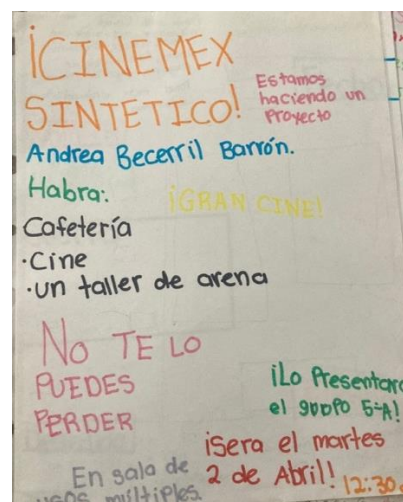 ¡CINEMEX
SINTETICO!
Estamos
haciendo un
Proyecto
Andrea Becerril Barrón.
Habra:
¡GRAN CINE!
Cafetería
·Cine
·un taller de arena
NO TE LO
PUEDES
PERDER
¡Lo Presentara
el grupo 5-A!
¡Sera el martes
2 de Abril!
12:30
En sala de
usos múltiples.